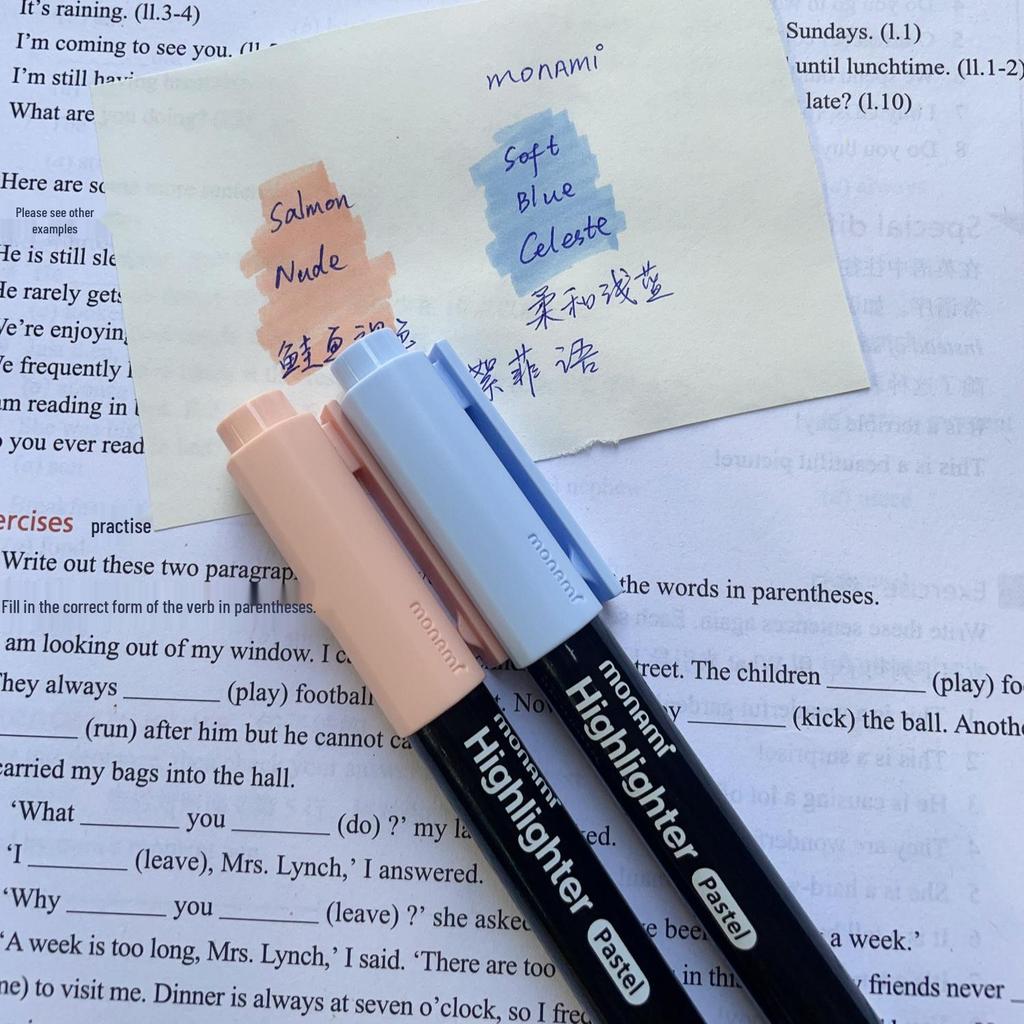 It's raining. (ll.3-4)
I'm coming to see you. (ll
I'm still having
What are you doing?
Sundays. (l.1)
until lunchtime. (ll.1-2)
late? (l.10)
monami
Salmon
Nude
鲑鱼裸
Soft
Blue
Celeste
柔和浅蓝
絮菲语
Here are so
Please see other
examples
He is still sle
He rarely gets
We're enjoying
We frequently
am reading in
you ever read
ercises practise
Write out these two paragrap
the words in parentheses.
Fill in the correct form of the verb in parentheses.
am looking out of my window. I c
treet. The children ________ (play) fo
They always ________ (play) football
. No
________ (kick) the ball. Anothe
________ (run) after him but he cannot ca
carried my bags into the hall.
'What ________ you ________ (do) ?' my la
ed.
'I ________ (leave), Mrs. Lynch,' I answered.
'Why ________ you ________ (leave) ?' she asked
e bee
a week.'
'A week is too long, Mrs. Lynch,' I said. 'There are too
in thi
friends never
me) to visit me. Dinner is always at seven o'clock, so I fre
monami
monami
monami
Highlighter
Pastel
monami
Highlighter
Pastel